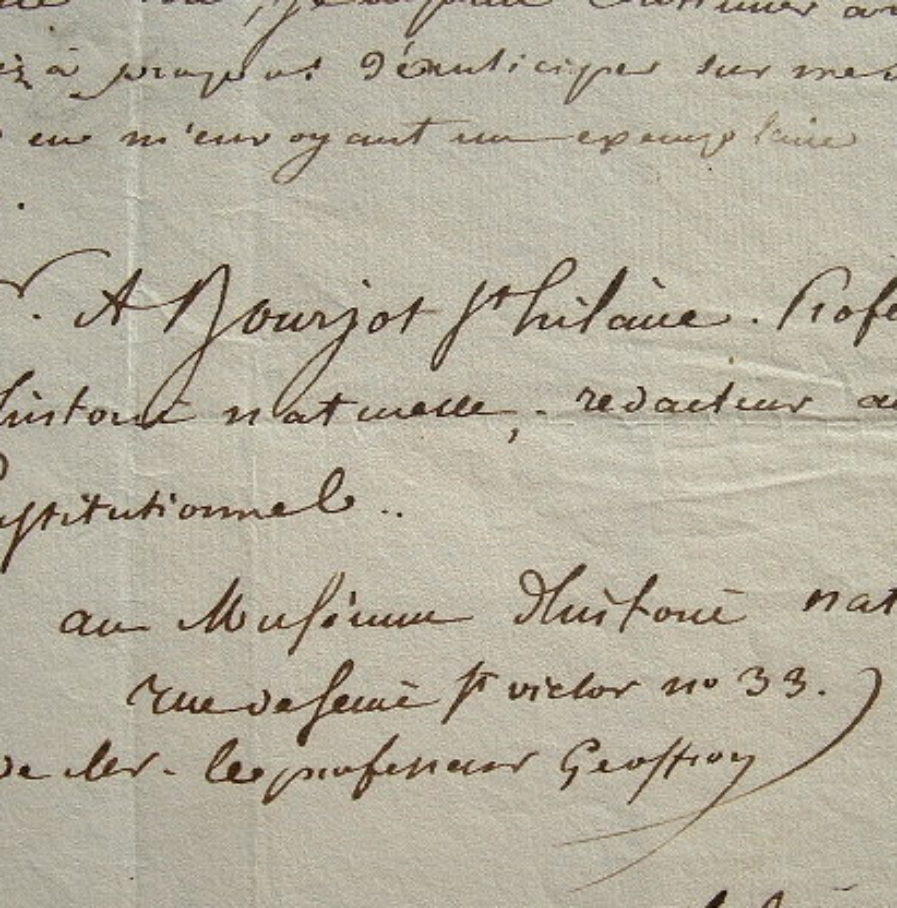 à propos d'éanticiper sur mes
en m'envoyant un exemplaire
. A Bourjot St hilaire. Profe
histoire naturelle, redacteur au
nstitutionnel..
au Muséum D'histoire nat
rue de Seine St victor no 33.
de Mr. le professeur Geoffroy